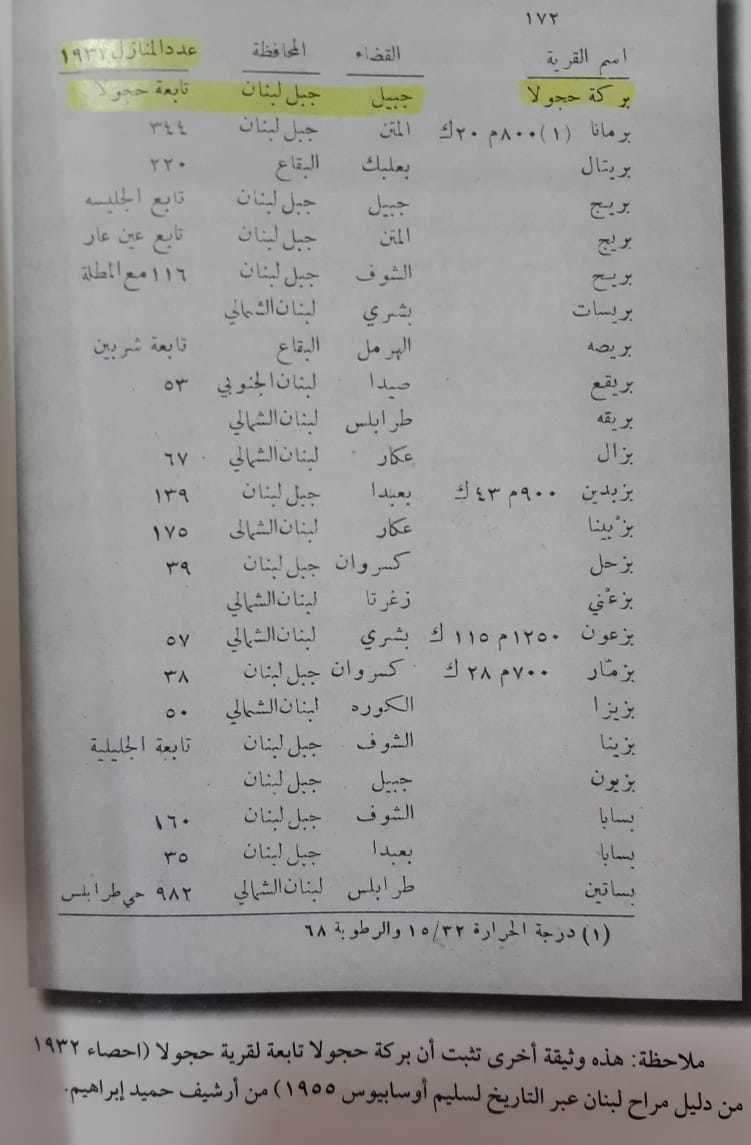 ١٧٢
اسم القرية القضاء المحافظة عدد المنازل ١٩٣٢
بركة حجولا جبيل جبل لبنان تابعة حجولا
برمانا (١) ٨٠٠م ٢٠ك المتن جبل لبنان ٣٤٤
بريتال بعلبك البقاع ٢٢٠
بريج جبيل جبل لبنان تابع الجليسه
بريج المتن جبل لبنان تابع عين عار
بريح الشوف جبل لبنان ١١٦ مع المطلة
بريسات بشري لبنان الشمالي
بريصه الهرمل البقاع تابعة شربين
بريقع صيدا لبنان الجنوبي ٥٣
بريقه طرابلس لبنان الشمالي
بزال عكار لبنان الشمالي ٦٧
بزبدين ٩٠٠م ٤٣ك بعبدا جبل لبنان ١٣٩
بزْبينا عكار لبنان الشمالى ١٧٥
بزحل كسروان جبل لبنان ٣٩
بزعْني زغرتا لبنان الشمالي
بزعون ١٢٥٠م ١١٥ك بشري لبنان الشمالي ٥٧
بزمّار ٧٠٠م ٢٨ك كسروان جبل لبنان ٣٨
بزيزا الكوره لبنان الشمالي ٥٠
بزينا الشوف جبل لبنان تابعة الجليلية
بزيون جبيل جبل لبنان
بسابا الشوف جبل لبنان ١٦٠
بسابا بعبدا جبل لبنان ٣٥
بساتين طرابلس لبنان الشمالي ٩٨٢ حي طرابلس
(١) درجة الحرارة ١٥/٣٢ والرطوبة ٦٨
ملاحظة: هذه وثيقة أخرى تثبت أن بركة حجولا تابعة لقرية حجولا (احصاء ١٩٣٢
من دليل مراح لبنان عبر التاريخ لسليم أوسابيوس ١٩٥٥) من أرشيف حميد إبراهيم.